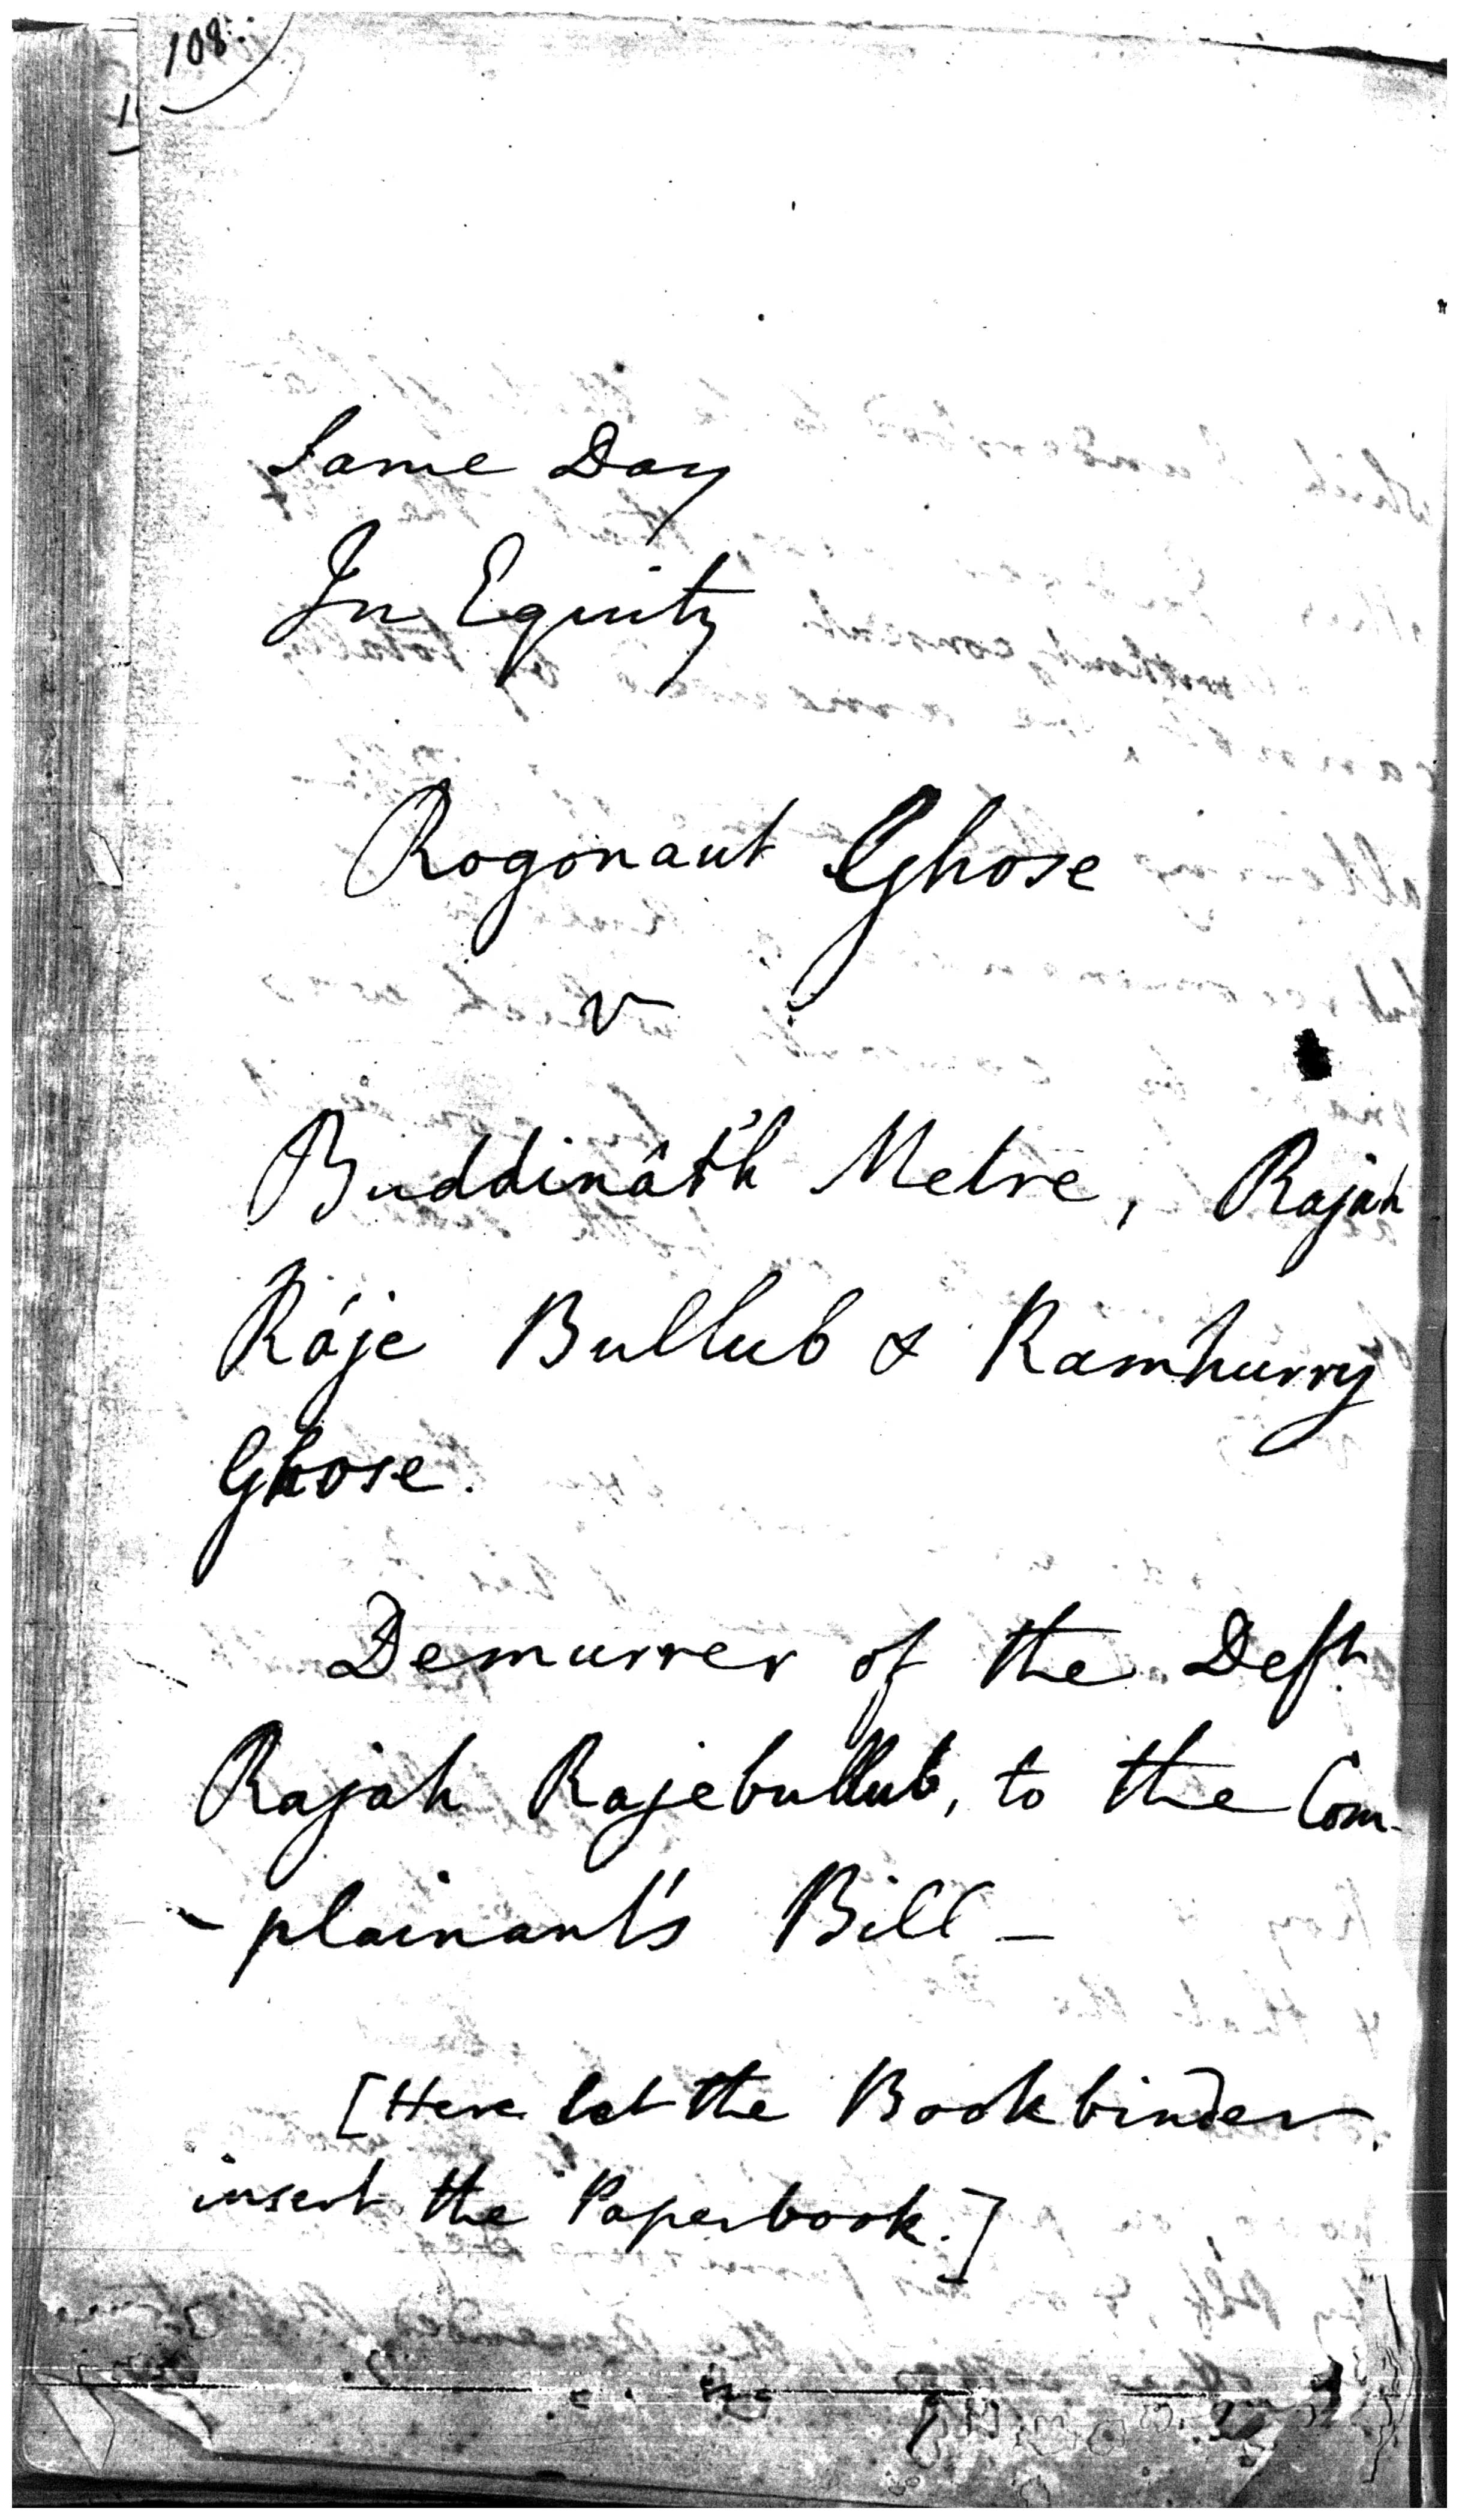 108.
Same Day
In Equity
Rogonaut Ghose
v
Buddinâth Metre, Rajah
Ráje Bullub & Ramhurry
Ghose.
Demurrer of the Deft
Rajah Rajebullub, to the Com-
-plainant's Bill -
[Here let the Bookbinder
insert the Paperbook.]